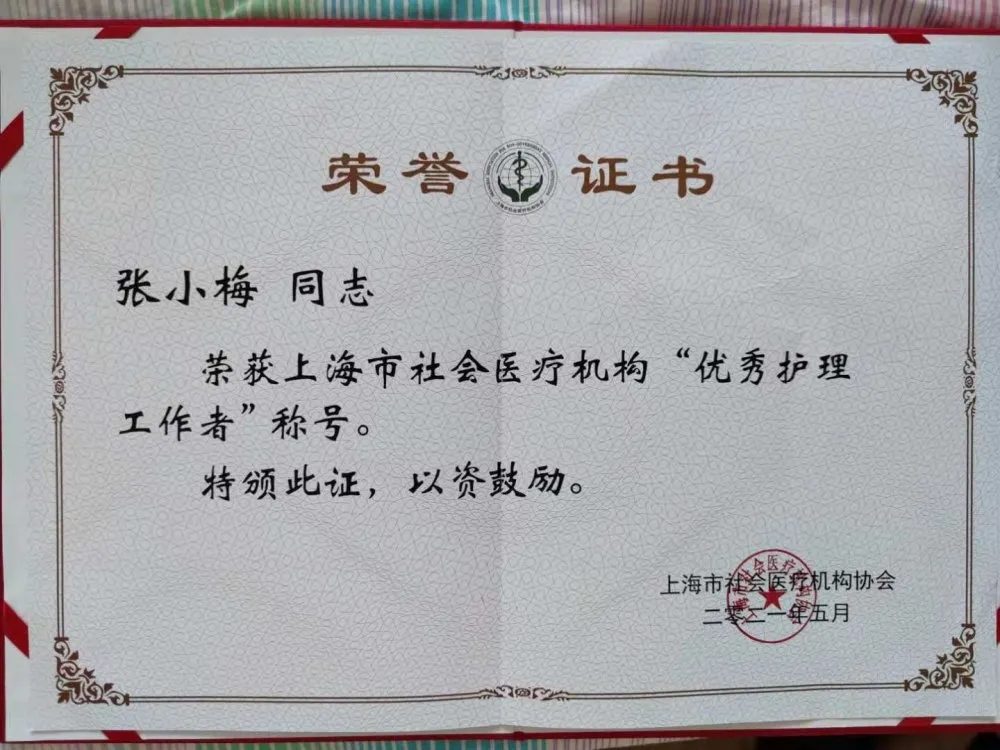 荣誉证书
张小梅 同志
荣获上海市社会医疗机构“优秀护理
工作者”称号。
特颁此证，以资鼓励。
上海市社会医疗机构协会
二零二一年五月